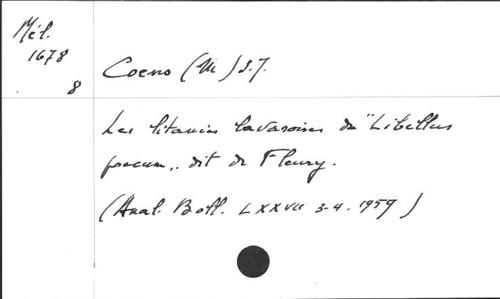 Mél.
1678
8
Coens (M) S.J.
Les litanies bavaroises du "Libellus
precum" dit de Fleury.
(Anal. Boll. LXXVII 3-4. 1959)